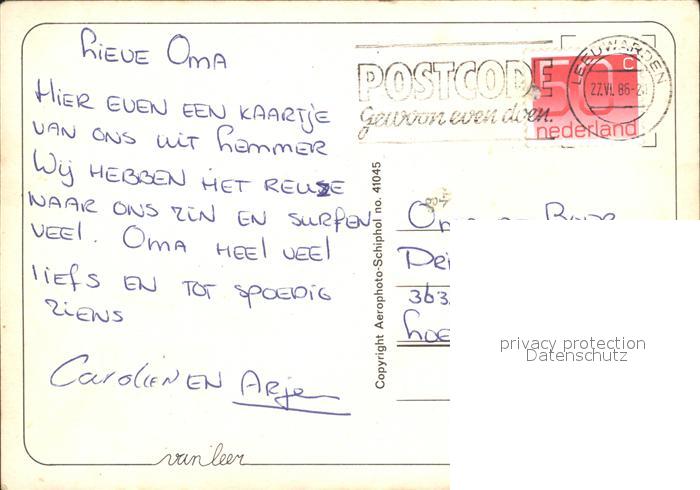 Lieve Oma
HIER EVEN EEN KAARTJE
VAN ONS UIT LEMMER
Wij HEBBEN HET REUZE
NAAR ONS ZIN EN SURFEN
VEEL. OMA HEEL VEEL
liefs EN TOT SPOEDIG
ZIENS
Carolien EN Arjen
van leer
Copyright Aerophoto-Schiphol no. 41045
POSTCODE
Gewoon even doen.
LEEUWARDEN
27.VI. 86-
50 c
nederland
363
privacy protection
Datenschutz